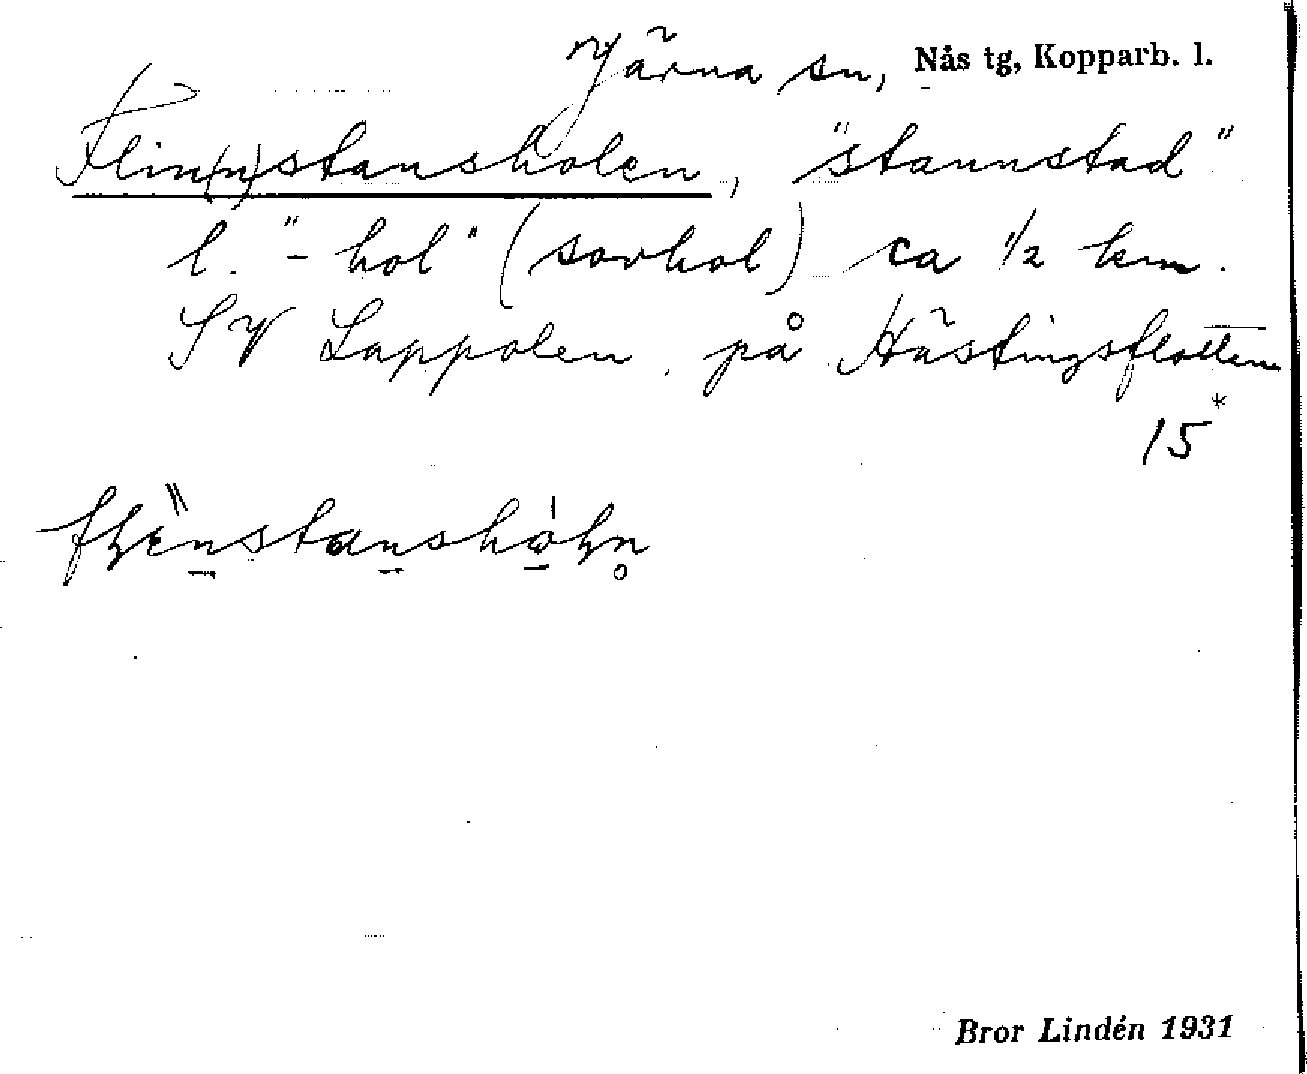 Järna sn, Nås tg, Kopparb. l.
Flin(n)stansholen, "stannstad"
l. "-hol" (sovhol) ca 1/2 km.
SV Lappolen på Hästingsflotten
15*
Bror Lindén 1931